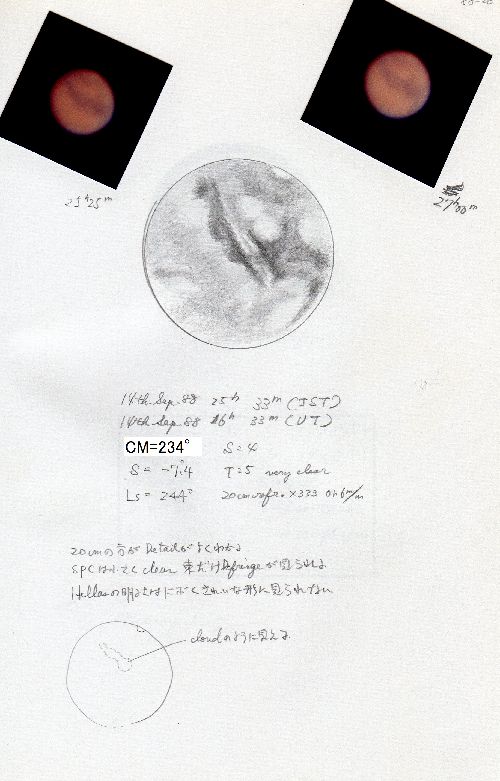 25h25m
27h00m
14th Sep. 88 25h 33m (JST)
14th Sep. 88 16h 33m (UT)
CM=234° S=4
δ= -7.°4 T=5 very clear
Ls= 244° 20cm refr. ×333 Or6m/m
20cmの方がDetailがよくわかる
SPCは clear 東だけfringeが見られる
Hellasの明るさはにぶくきれいな形に見られない
cloudのように見える